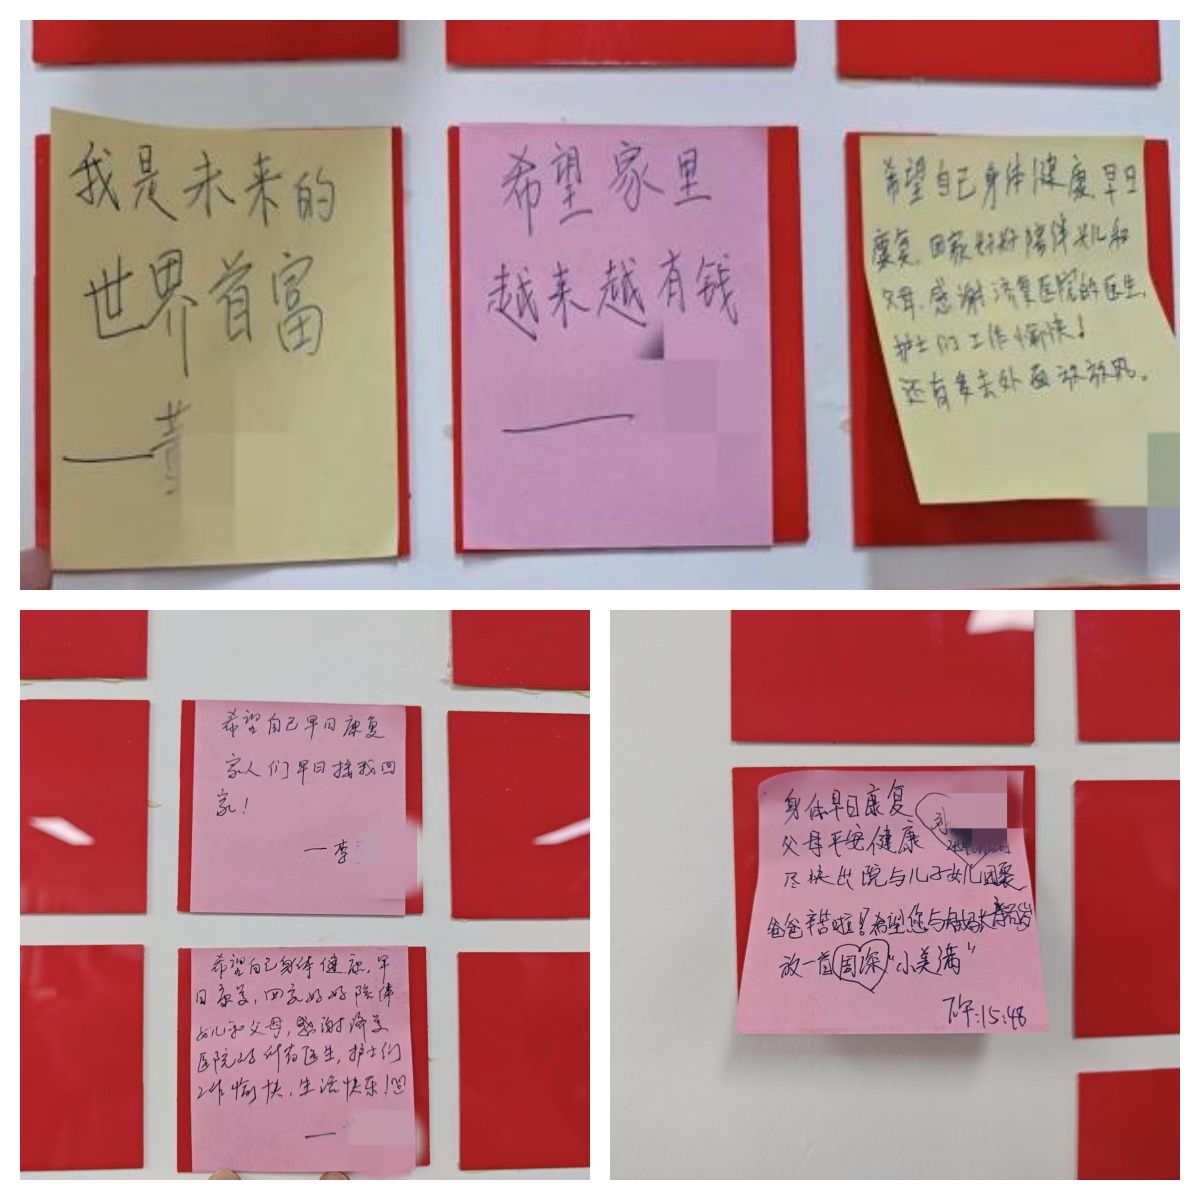 我是未来的
世界首富
——董
希望家里
越来越有钱
——
希望自己身体健康,早日
康复,回家好好陪伴女儿和
父母,感谢济复医院的医生,
护士们工作愉快!
还有多去外面放放风。
希望自己早日康复
家人们早日接我回
家!
—李
希望自己身体健康,早
日康复,回家好好陪伴
女儿和父母,感谢济复
医院的所有医生,护士们
工作愉快,生活快乐!
—
身体早日康复
父母平安健康
尽快出院与儿子女儿团聚
爸爸辛苦啦!希望您与妈妈
放一首周深“小美满”
下午:15:48